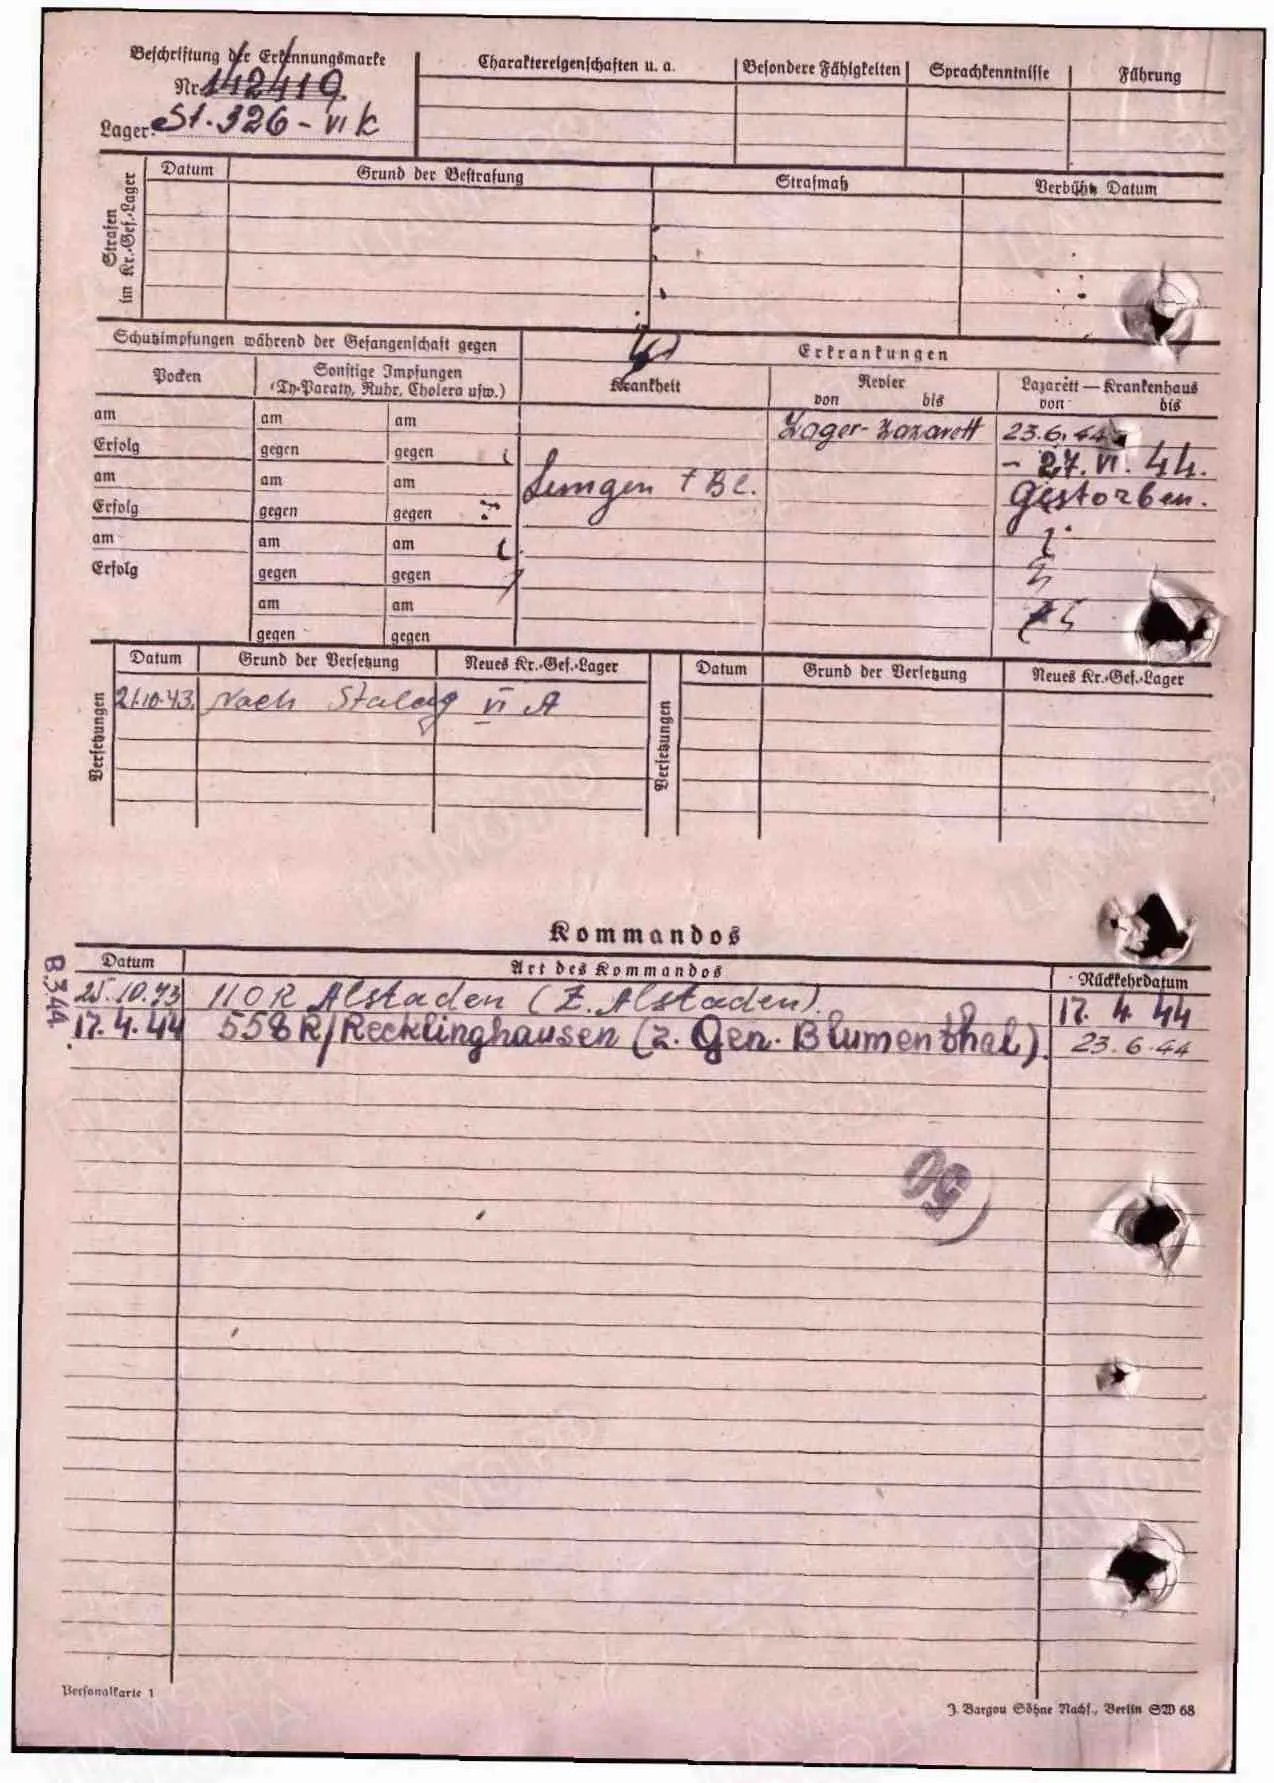 Beschriftung der Erkennungsmarke
Nr. 142419
Lager: St. 326 - VI K
Charaktereigenschaften u. a.
Besondere Fähigkeiten
Sprachkenntnisse
Führung
Strafen im Kr.-Gef.-Lager
Datum
Grund der Bestrafung
Strafmaß
Verbüßt, Datum
Schutzimpfungen während der Gefangenschaft gegen
Erkrankungen
Pocken
Sonstige Impfungen
(Ty.-Paraty, Ruhr, Cholera usw.)
Krankheit
Revier
von bis
Lazarett — Krankenhaus
von bis
am am am
Lager-Lazarett 23.6.44
Erfolg gegen gegen
- 27. VI. 44.
am am am
Lungen tBc. Gestorben.
Erfolg gegen gegen
am am am
Erfolg gegen gegen
am am
gegen gegen
Versetzungen
Datum Grund der Versetzung Neues Kr.-Gef.-Lager
21.10.43. Nach Stalag VI A
Versetzungen
Datum Grund der Versetzung Neues Kr.-Gef.-Lager
Kommandos
Datum Art des Kommandos Rückkehrdatum
B.344.
25.10.43 110 R Alstaden (Z. Alstaden). 17. 4. 44
17. 4. 44 558 R/Recklinghausen (z. Gen. Blumenthal). 23.6.44
50
Personalkarte 1
J. Bargou Söhne Nachf., Berlin SW 68